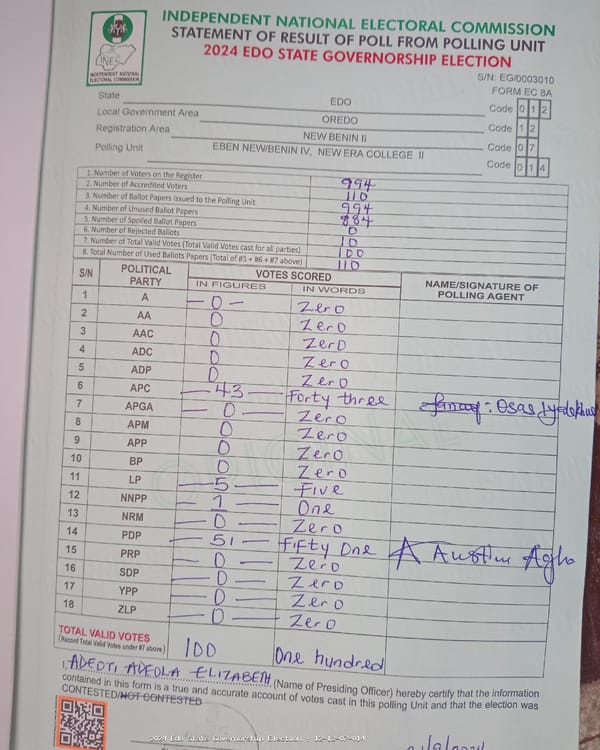 INDEPENDENT NATIONAL ELECTORAL COMMISSION
STATEMENT OF RESULT OF POLL FROM POLLING UNIT
2024 EDO STATE GOVERNORSHIP ELECTION
INEC
INDEPENDENT NATIONAL
ELECTORAL COMMISSION
S/N: EG/0003010
FORM EC 8A
State EDO Code 0 1 2
Local Government Area OREDO Code 1 2
Registration Area NEW BENIN II Code 0 7
Polling Unit EBEN NEW/BENIN IV, NEW ERA COLLEGE II Code 0 1 4
1. Number of Voters on the Register 994
2. Number of Accredited Voters 110
3. Number of Ballot Papers Issued to the Polling Unit 994
4. Number of Unused Ballot Papers 884
5. Number of Spoiled Ballot Papers 0
6. Number of Rejected Ballots 10
7. Number of Total Valid Votes (Total Valid Votes cast for all parties) 100
8. Total Number of Used Ballots Papers (Total of #5 + #6 + #7 above) 110
S/N POLITICAL PARTY VOTES SCORED NAME/SIGNATURE OF POLLING AGENT
IN FIGURES IN WORDS
1 A - 0 - Zero
2 AA 0 Zero
3 AAC 0 Zero
4 ADC 0 Zero
5 ADP 0 Zero
6 APC - 43 - Forty three
7 APGA - 0 - Zero
8 APM 0 Zero
9 APP 0 Zero
10 BP 0 Zero
11 LP - 5 - Five
12 NNPP - 1 - One
13 NRM - 0 - Zero
14 PDP - 51 - Fifty One Austin Agho
15 PRP - 0 - Zero
16 SDP - 0 - Zero
17 YPP - 0 - Zero
18 ZLP - 0 - Zero
TOTAL VALID VOTES 100 One hundred
I, ADEOTI ADEOLA ELIZABETH (Name of Presiding Officer) hereby certify that the information
contained in this form is a true and accurate account of votes cast in this polling Unit and that the election was
CONTESTED/NOT CONTESTED
2024 Edo State Governorship Election - 12-12-07-014